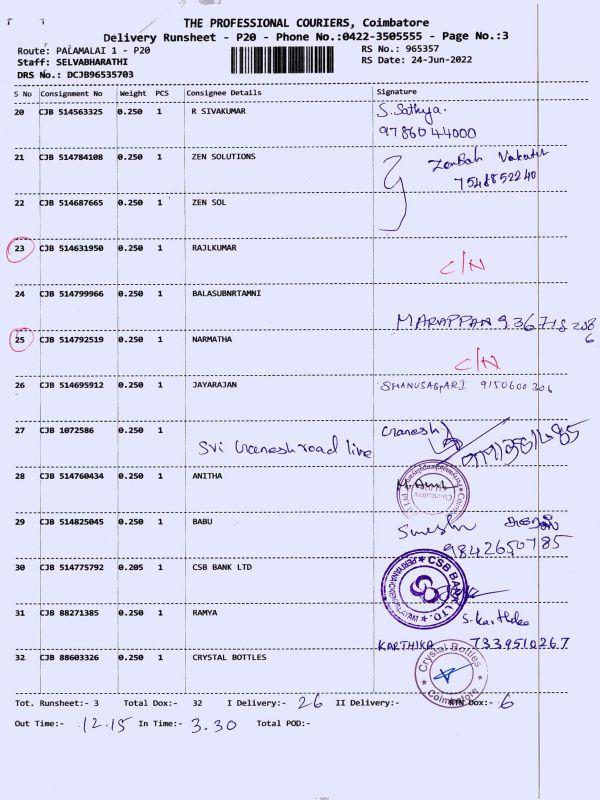 THE PROFESSIONAL COURIERS, Coimbatore
Delivery Runsheet - P20 - Phone No.:0422-3505555 - Page No.:3
Route: PALAMALAI 1 - P20 RS No.: 965357
Staff: SELVABHARATHI RS Date: 24-Jun-2022
DRS No.: DCJB96535703
S No Consignment No Weight PCS Consignee Details Signature
20 CJB 514563325 0.250 1 R SIVAKUMAR S. Sathya.
9786044000
21 CJB 514784108 0.250 1 ZEN SOLUTIONS
7548852240
22 CJB 514687665 0.250 1 ZEN SOL
23 CJB 514631950 0.250 1 RAJLKUMAR C/N
24 CJB 514799966 0.250 1 BALASUBNRTAMNI
MARAPPAN
25 CJB 514792519 0.250 1 NARMATHA
C/N
26 CJB 514695912 0.250 1 JAYARAJAN 9150600306
27 CJB 1072586 0.250 1 Sri Ganesh road line Ganesh
28 CJB 514760434 0.250 1 ANITHA
29 CJB 514825045 0.250 1 BABU
9842650785
30 CJB 514775792 0.205 1 CSB BANK LTD CSB BANK LTD.,
31 CJB 88271385 0.250 1 RAMYA
KARTHIKA 7339510267
32 CJB 88603326 0.250 1 CRYSTAL BOTTLES Crystal Bottles Coimbatore
Tot. Runsheet:- 3 Total Dox:- 32 I Delivery:- 26 II Delivery:- Dox:- 6
Out Time:- 12.15 In Time:- 3.30 Total POD:-